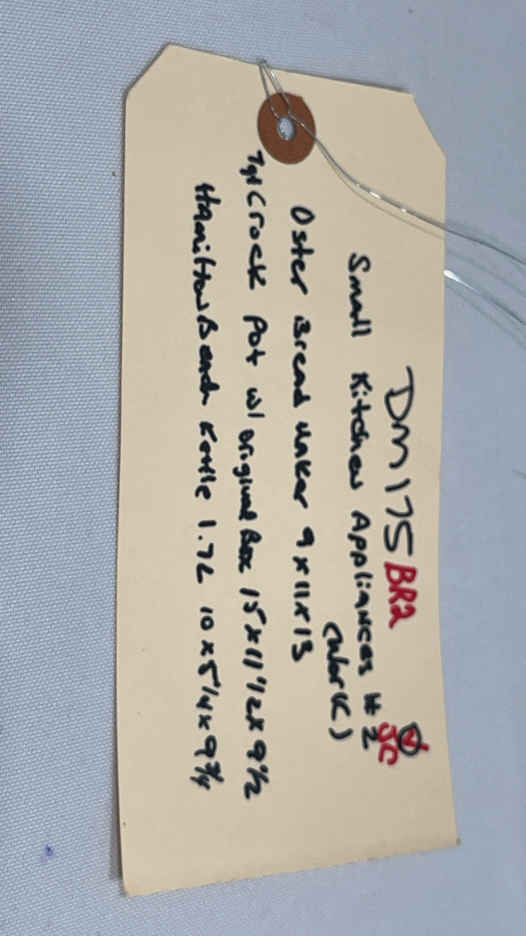 DM175 BR2
Small Kitchen Appliances #2 JC
(Work)
Oster Bread Maker 9x11x13
7qt Crock Pot w/ original Box 15x11 1/2x9 1/2
Hamilton Beach Kettle 1.7L 10x5 1/4x9 3/4